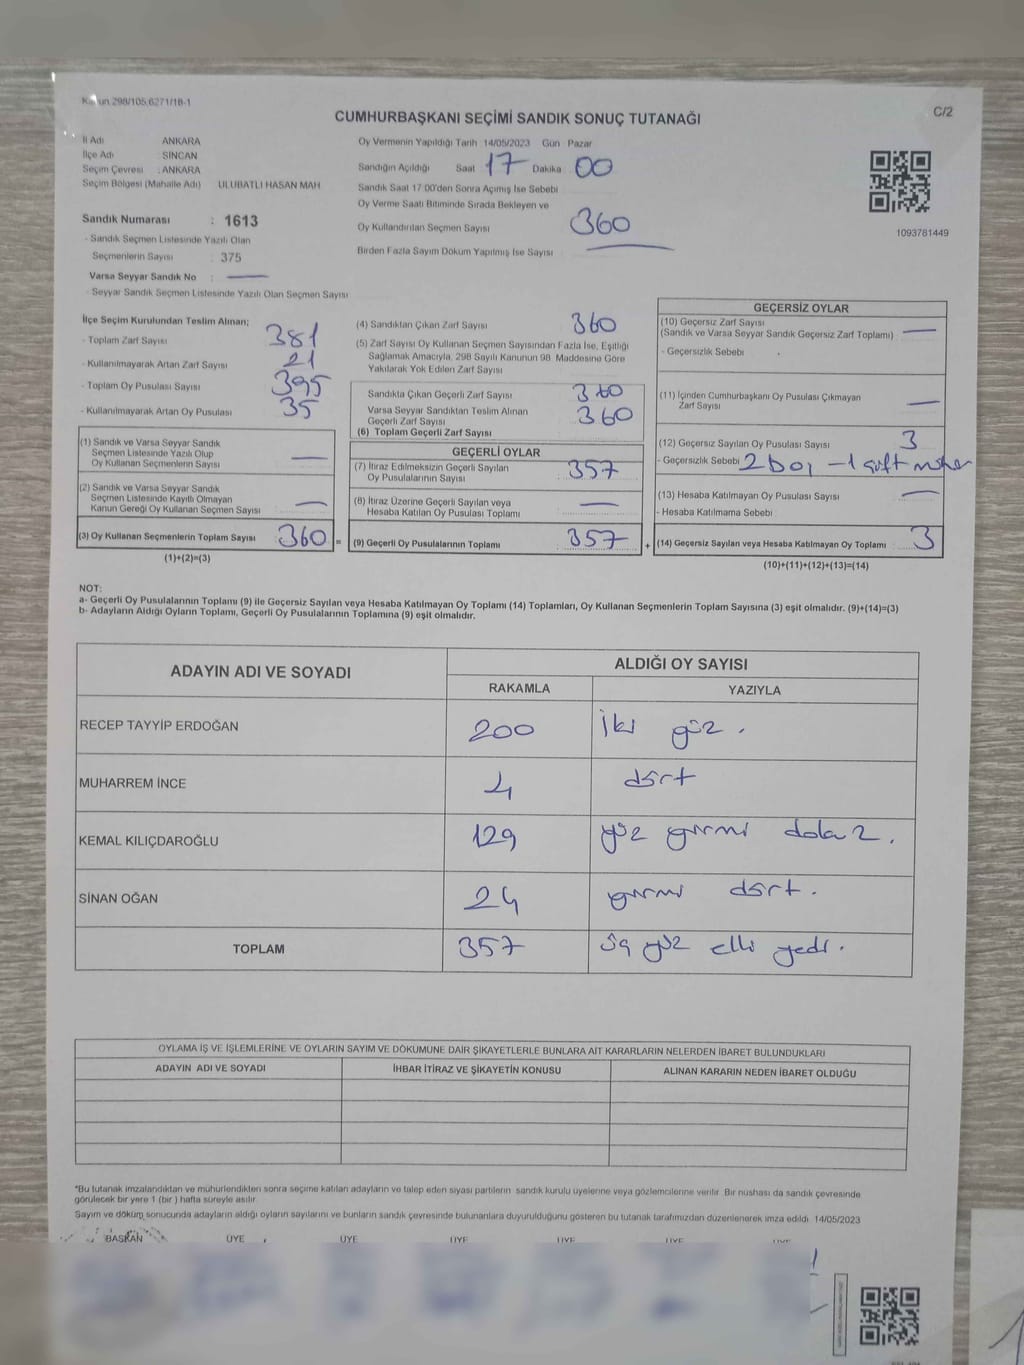 Kanun 298/105,6271/18-1
CUMHURBAŞKANI SEÇİMİ SANDIK SONUÇ TUTANAĞI
C/2
İl Adı ANKARA
İlçe Adı SİNCAN
Seçim Çevresi : ANKARA
Seçim Bölgesi (Mahalle Adı) ULUBATLI HASAN MAH
Sandık Numarası : 1613
- Sandık Seçmen Listesinde Yazılı Olan
Seçmenlerin Sayısı : 375
Varsa Seyyar Sandık No :
- Seyyar Sandık Seçmen Listesinde Yazılı Olan Seçmen Sayısı
Oy Vermenin Yapıldığı Tarih 14/05/2023 Gün Pazar
Sandığın Açıldığı Saat 17 Dakika 00
Sandık Saat 17 00'den Sonra Açımış İse Sebebi
Oy Verme Saati Bitiminde Sırada Bekleyen ve
Oy Kullandırılan Seçmen Sayısı 360
Birden Fazla Sayım Döküm Yapılmış İse Sayısı
1093781449
İlçe Seçim Kurulundan Teslim Alınan;
- Toplam Zarf Sayısı 381
- Kullanılmayarak Artan Zarf Sayısı 21
- Toplam Oy Pusulası Sayısı 395
- Kullanılmayarak Artan Oy Pusulası 35
(1) Sandık ve Varsa Seyyar Sandık
Seçmen Listesinde Yazılı Olup
Oy Kullanan Seçmenlerin Sayısı
(2) Sandık ve Varsa Seyyar Sandık
Seçmen Listesinde Kayıtlı Olmayan
Kanun Gereği Oy Kullanan Seçmen Sayısı
(3) Oy Kullanan Seçmenlerin Toplam Sayısı 360 =
(1)+(2)=(3)
(4) Sandıktan Çıkan Zarf Sayısı 360
(5) Zarf Sayısı Oy Kullanan Seçmen Sayısından Fazla İse, Eşitliği
Sağlamak Amacıyla, 298 Sayılı Kanunun 98. Maddesine Göre
Yakılarak Yok Edilen Zarf Sayısı
Sandıkta Çıkan Geçerli Zarf Sayısı 360
Varsa Seyyar Sandıktan Teslim Alınan
Geçerli Zarf Sayısı 360
(6) Toplam Geçerli Zarf Sayısı
GEÇERLİ OYLAR
(7) İtiraz Edilmeksizin Geçerli Sayılan
Oy Pusulalarının Sayısı 357
(8) İtiraz Üzerine Geçerli Sayılan veya
Hesaba Katılan Oy Pusulası Toplamı
(9) Geçerli Oy Pusulalarının Toplamı 357 +
GEÇERSİZ OYLAR
(10) Geçersiz Zarf Sayısı
(Sandık ve Varsa Seyyar Sandık Geçersiz Zarf Toplamı)
- Geçersizlik Sebebi
(11) İçinden Cumhurbaşkanı Oy Pusulası Çıkmayan
Zarf Sayısı
(12) Geçersiz Sayılan Oy Pusulası Sayısı 3
- Geçersizlik Sebebi 2 boş - 1 çift mühür
(13) Hesaba Katılmayan Oy Pusulası Sayısı
- Hesaba Katılmama Sebebi
(14) Geçersiz Sayılan veya Hesaba Katılmayan Oy Toplamı 3
(10)+(11)+(12)+(13)=(14)
NOT:
a- Geçerli Oy Pusulalarının Toplamı (9) ile Geçersiz Sayılan veya Hesaba Katılmayan Oy Toplamı (14) Toplamları, Oy Kullanan Seçmenlerin Toplam Sayısına (3) eşit olmalıdır. (9)+(14)=(3)
b- Adayların Aldığı Oyların Toplamı, Geçerli Oy Pusulalarının Toplamına (9) eşit olmalıdır.
ADAYIN ADI VE SOYADI ALDIĞI OY SAYISI
RAKAMLA YAZIYLA
RECEP TAYYİP ERDOĞAN 200 iki yüz.
MUHARREM İNCE 4 dört
KEMAL KILIÇDAROĞLU 129 yüz yirmi dokuz.
SİNAN OĞAN 24 yirmi dört.
TOPLAM 357 üç yüz elli yedi.
OYLAMA İŞ VE İŞLEMLERİNE VE OYLARIN SAYIM VE DÖKÜMÜNE DAİR ŞİKAYETLERLE BUNLARA AİT KARARLARIN NELERDEN İBARET BULUNDUKLARI
ADAYIN ADI VE SOYADI İHBAR İTİRAZ VE ŞİKAYETİN KONUSU ALINAN KARARIN NEDEN İBARET OLDUĞU
*Bu tutanak imzalandıktan ve mühürlendikten sonra seçime katılan adayların ve talep eden siyasi partilerin sandık kurulu üyelerine veya gözlemcilerine verilir. Bir nüshası da sandık çevresinde
görülecek bir yere 1 (bir) hafta süreyle asılır.
Sayım ve döküm sonucunda adayların aldığı oyların sayılarını ve bunların sandık çevresinde bulunanlara duyurulduğunu gösteren bu tutanak tarafımızdan düzenlenerek imza edildi. 14/05/2023
BAŞKAN ÜYE ÜYE ÜYE ÜYE ÜYE ÜYE